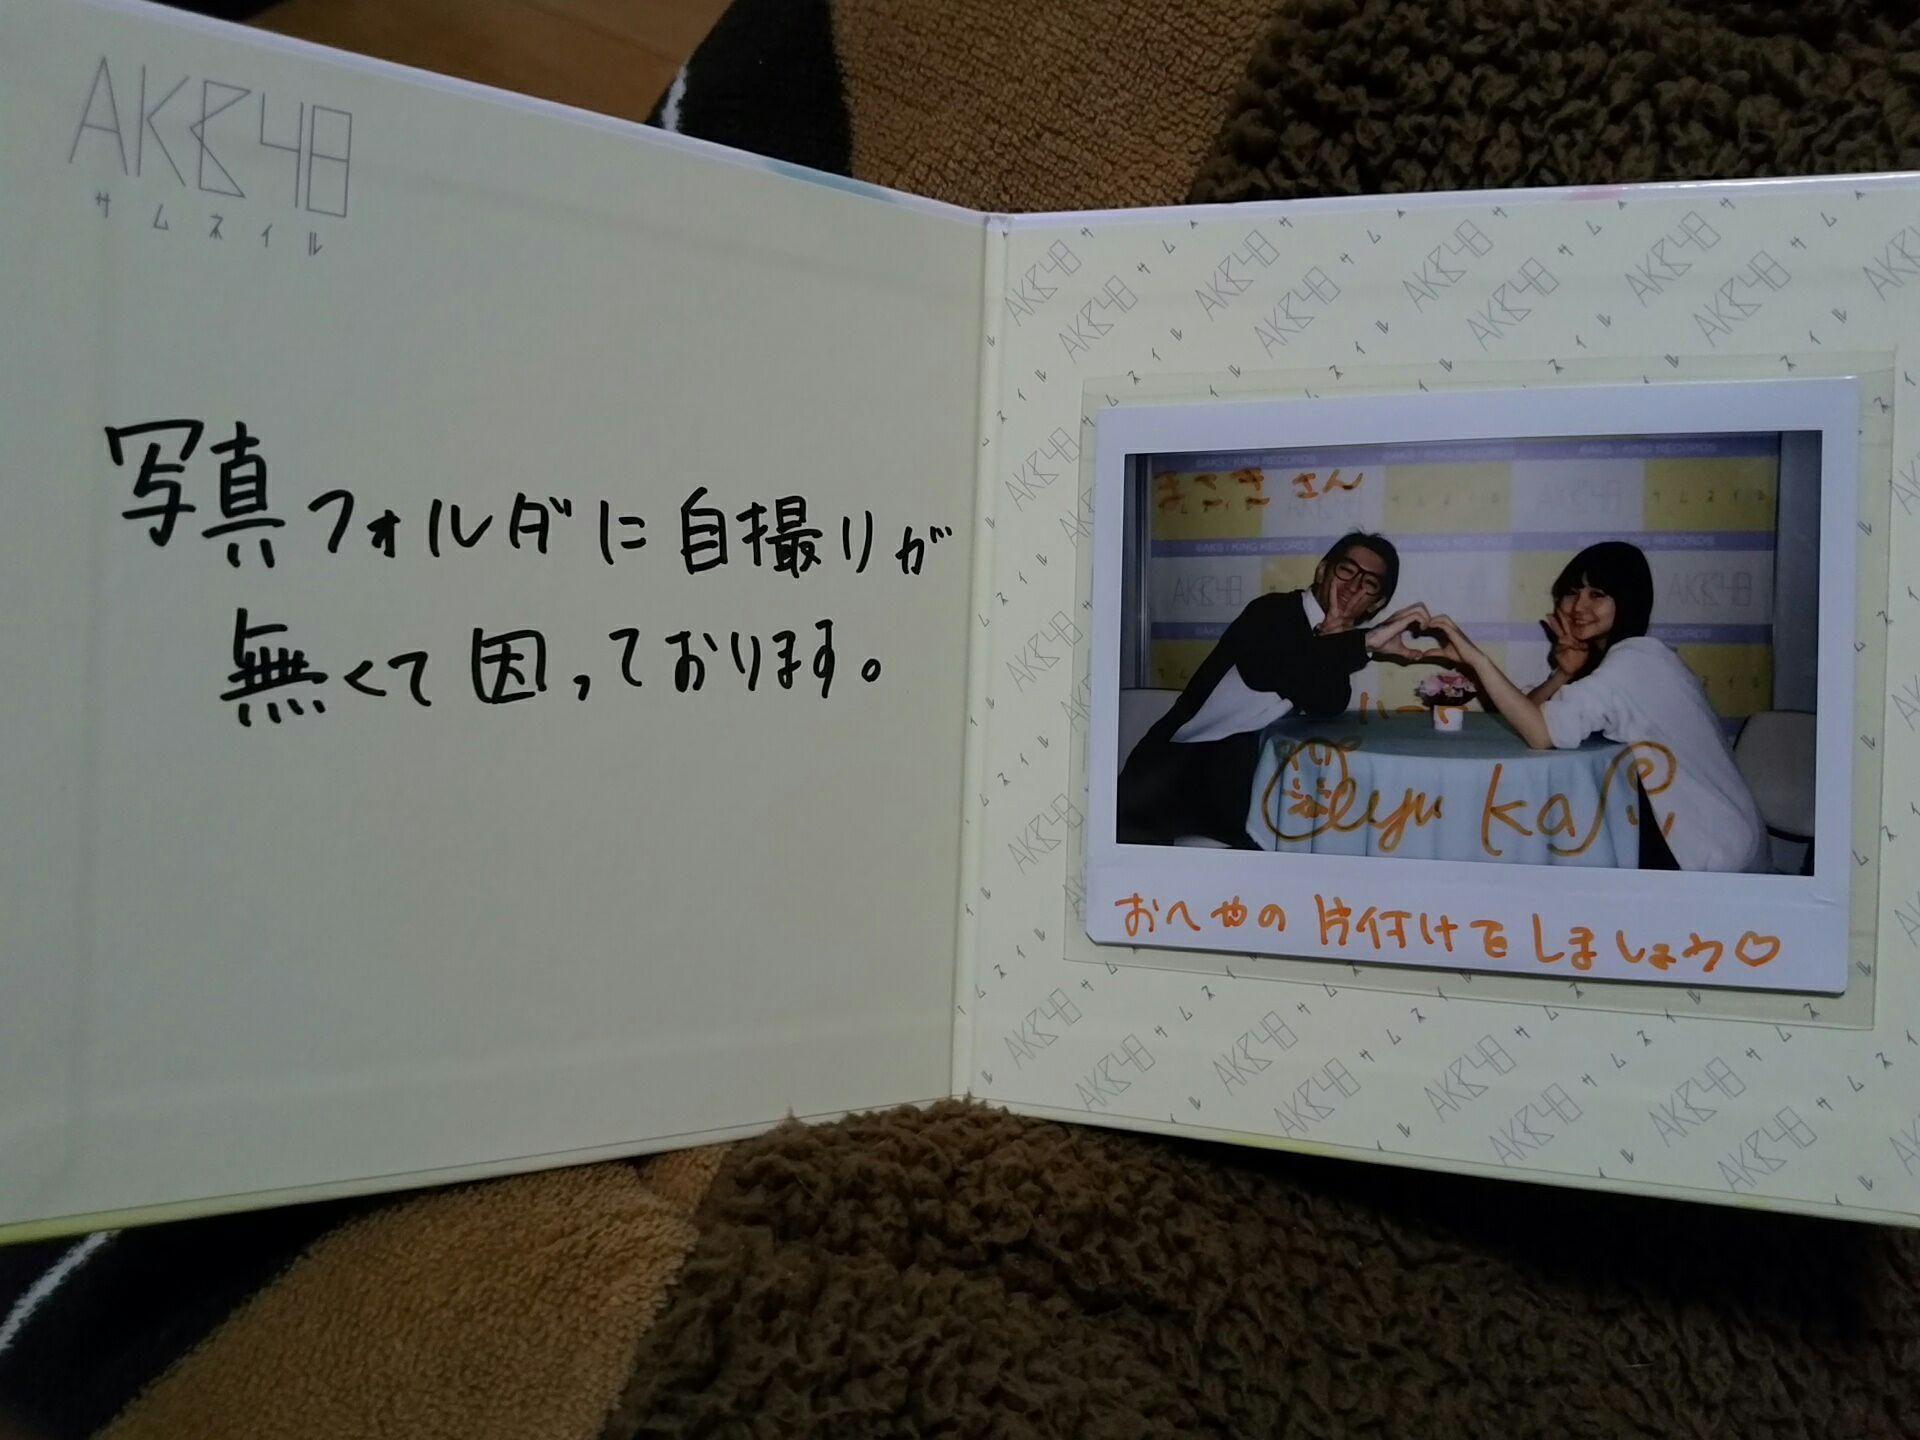 AKB48
サムネイル
写真フォルダに自撮りが
無くて困っております。
©AKS / KING RECORDS
まさきさん
AKB48
©AKS / KING RECORDS
AKB48
©AKS / KING RECORDS
おへやの片付けをしましょう♡